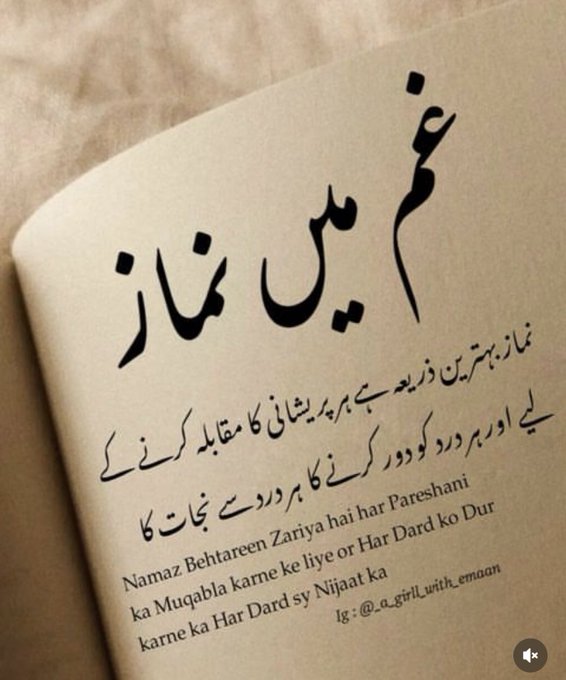 غم میں نماز
نماز بہترین ذریعہ ہے ہر پریشانی کا مقابلہ کرنے کے
لیے اور ہر درد کو دور کرنے کا ہر درد سے نجات کا
Namaz Behtareen Zariya hai har Pareshani
ka Muqabla karne ke liye or Har Dard ko Dur
karne ka Har Dard sy Nijaat ka
Ig : @_a_girll_with_emaan